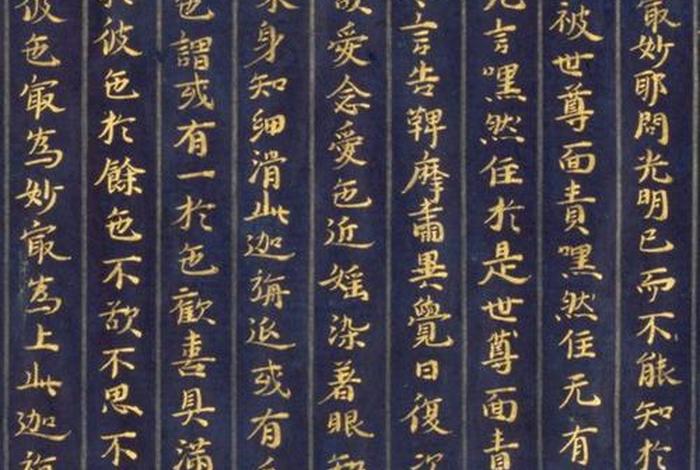 冣妙耶問光明已而不能知於
被世尊面責嘿然住无有
言嘿然住於是世尊面責
言告鞞摩肅異覺曰復
愛念愛色近婬染著眼
身知細滑此迦旃延或有
色謂或有一於色歡喜具滿
彼色於餘色不欲不思不
彼色冣為妙冣為上此迦旃